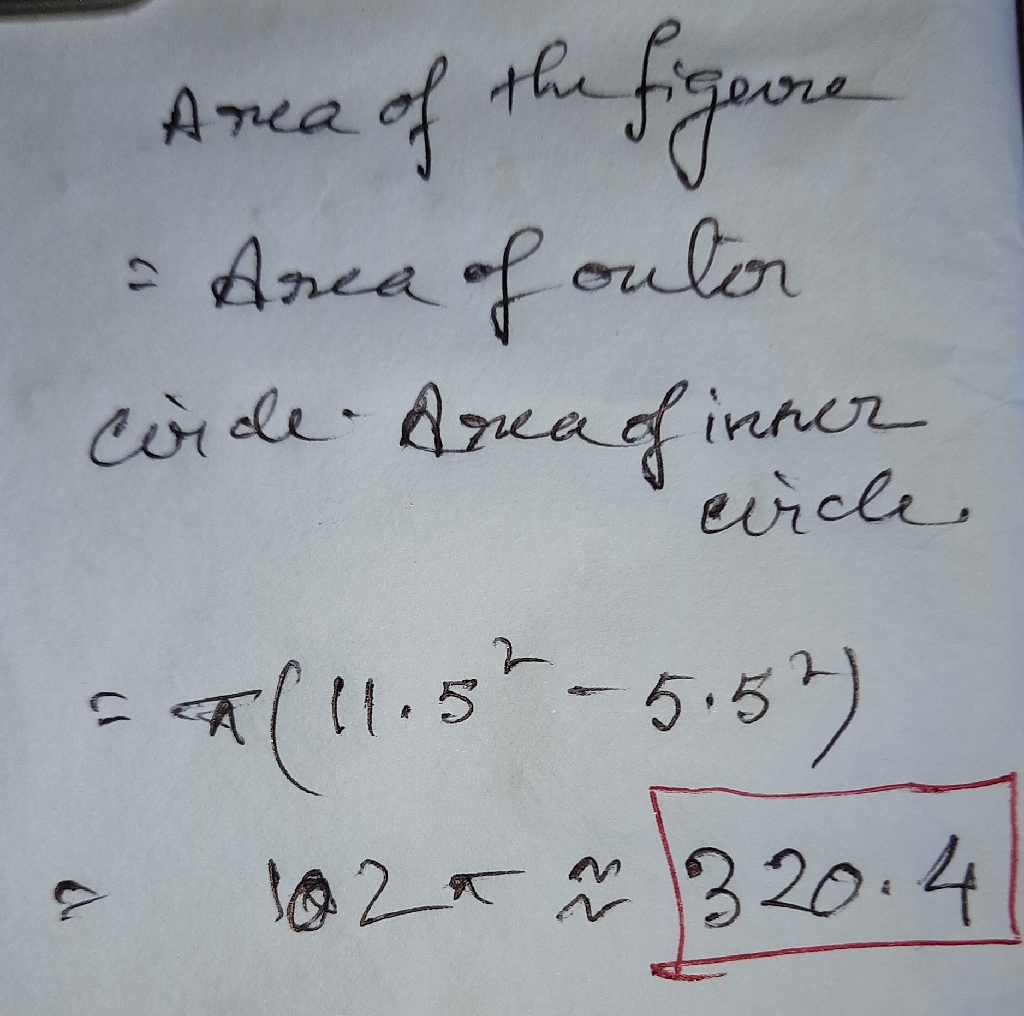 Area of the figure
= Area of outer
circle - Area of inner
circle.
= π(11.5² - 5.5²)
= 102π ≈ 320.4